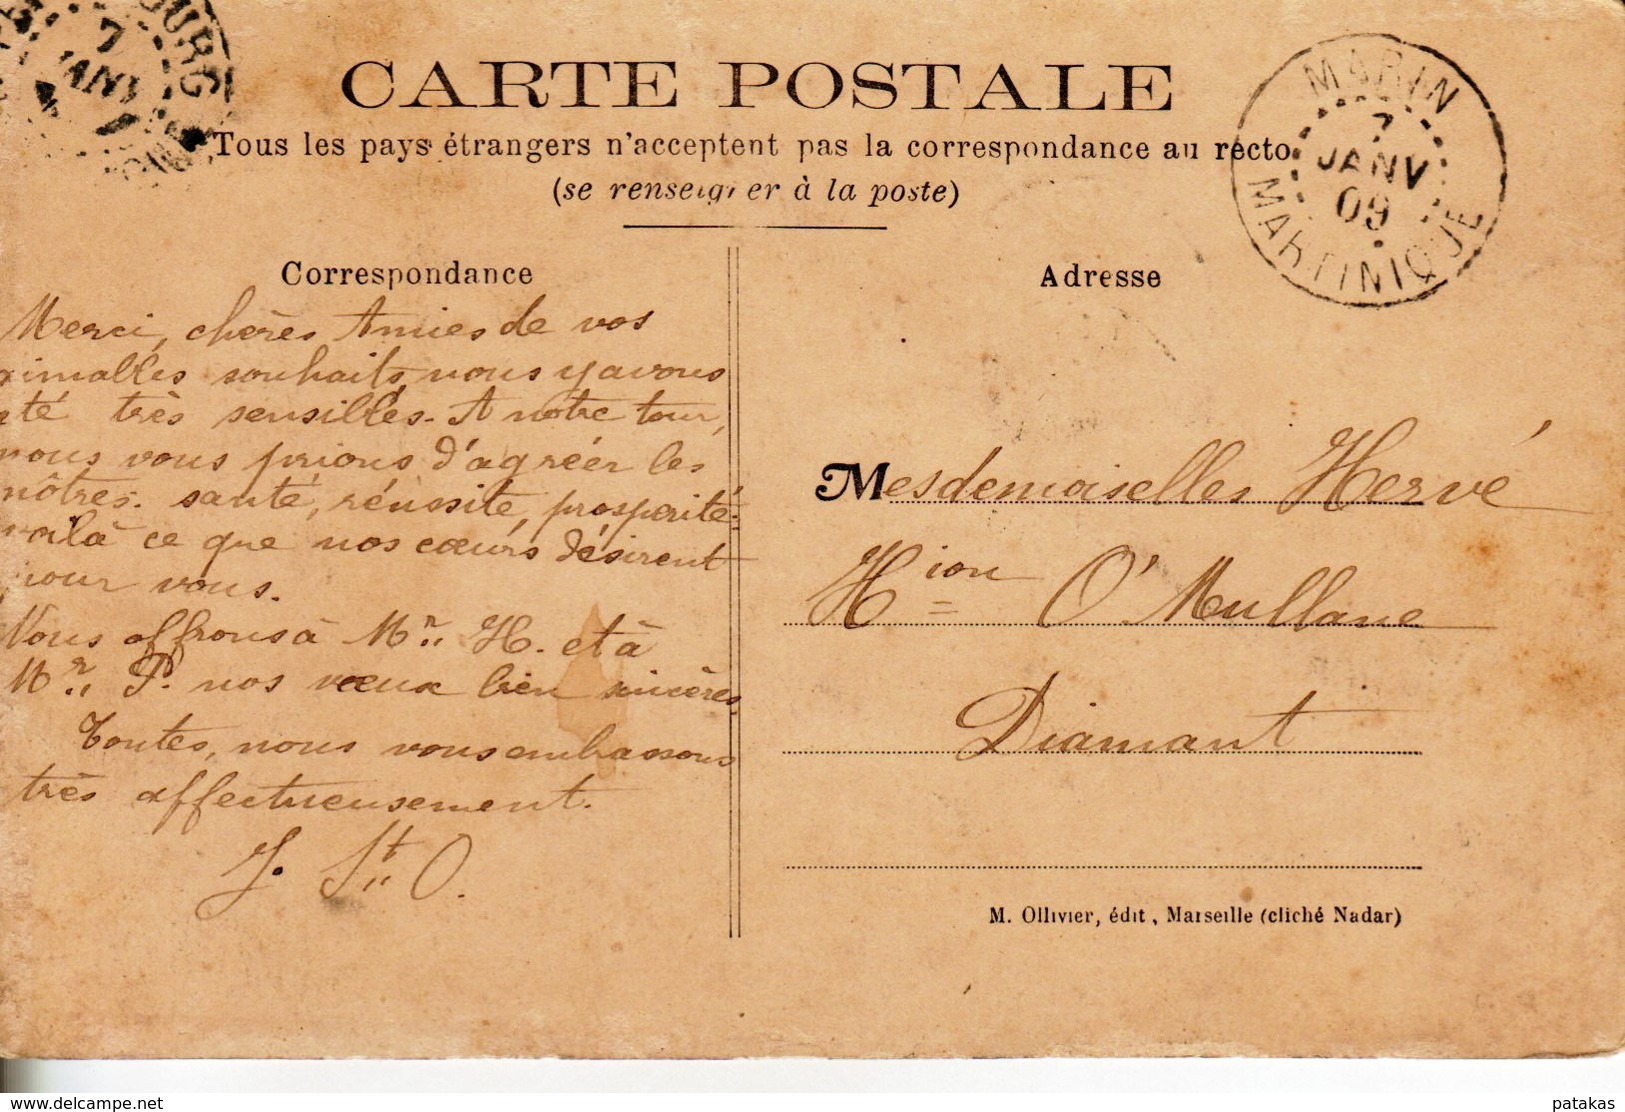 CARTE POSTALE
Tous les pays étrangers n'acceptent pas la correspondance au recto
(se renseigner à la poste)
MARIN
7
JANV
09
MARTINIQUE
7
JANV
Correspondance
Merci, chères Amies de vos
aimables souhaits, nous y avons
été très sensibles. A notre tour,
nous vous prions d'agréer les
nôtres. santé, réussite, prospérité:
voilà ce que nos cœurs désirent
pour vous.
Nous offrons à Mr. H. et à
Mr. P. nos vœux bien sincères.
Toutes, nous vous embrassons
très affectueusement.
J. St O.
Adresse
Mesdemoiselles Hervé
Hion O'Mullane
Diamant
M. Ollivier, édit, Marseille (cliché Nadar)
www.delcampe.net
patakas